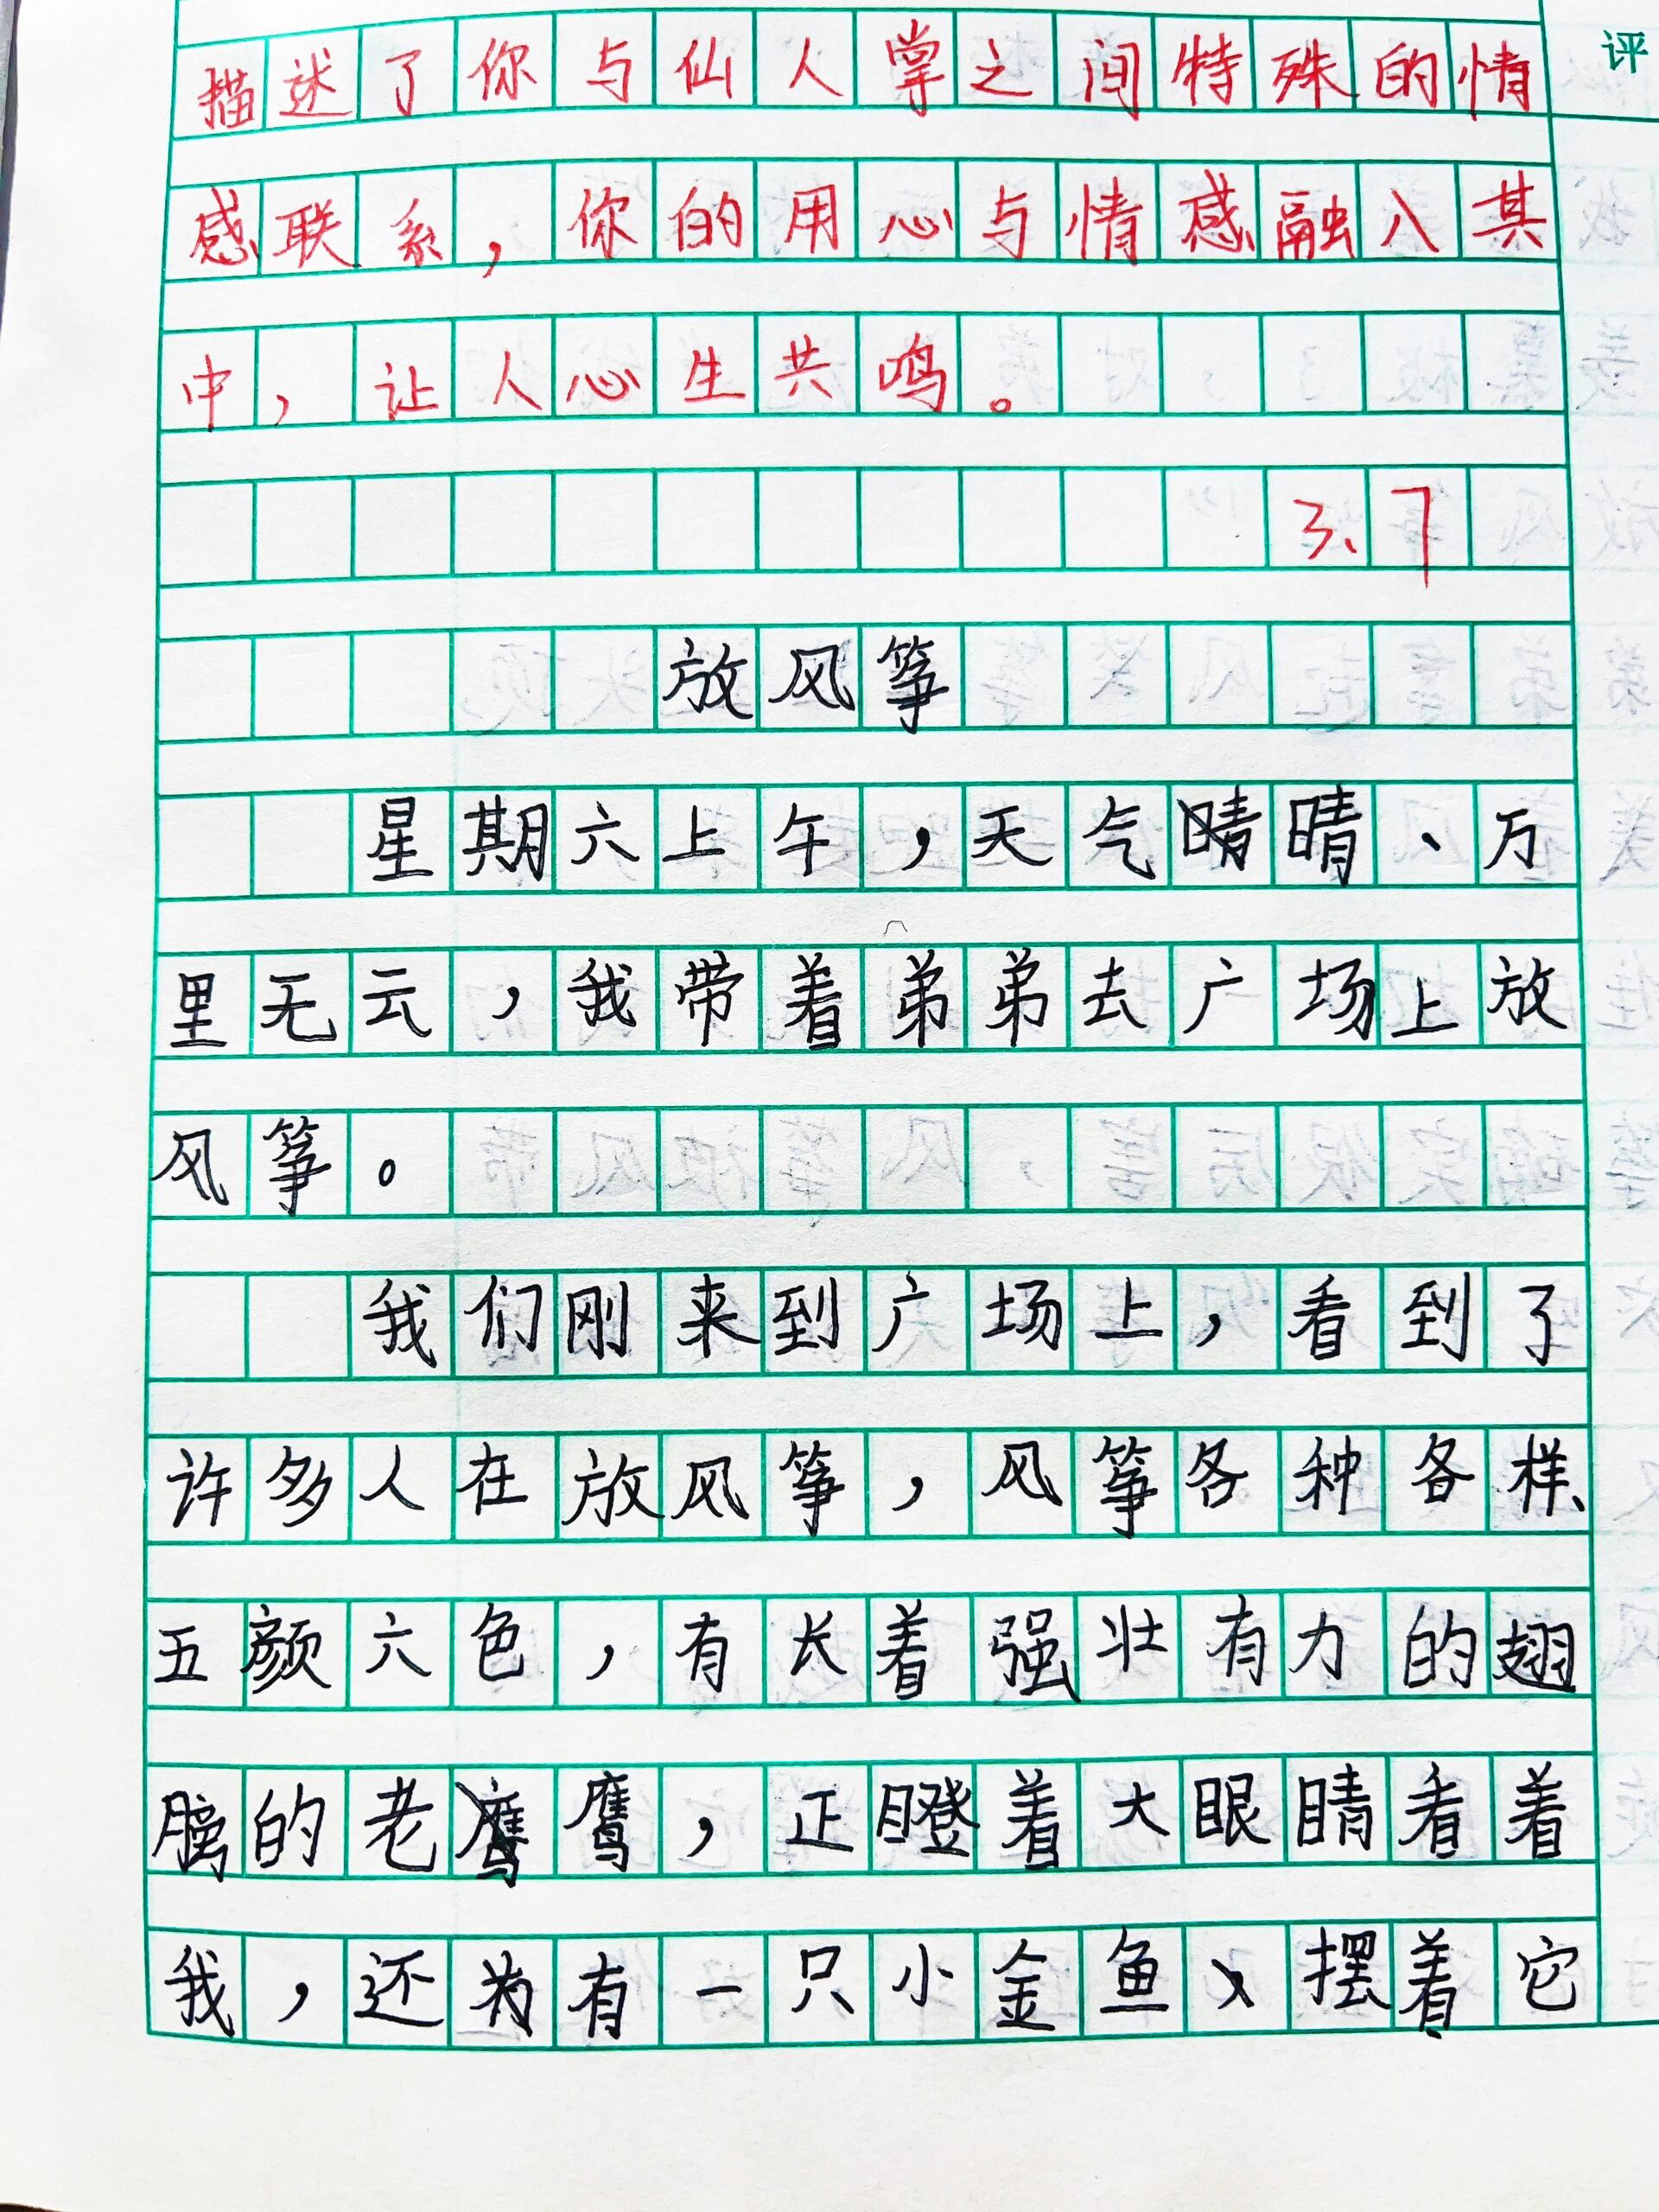 评
描述了你与仙人掌之间特殊的情
感联系，你的用心与情感融入其
中，让人心生共鸣。
3、7
放风筝
星期六上午，天气晴晴、万
里无云，我带着弟弟去广场上放
风筝。
我们刚来到广场上，看到了
许多人在放风筝，风筝各种各样、
五颜六色，有长着强壮有力的翅
膀的老鹰鹰，正瞪着大眼睛看着
我，还为有一只小金鱼、摆着它